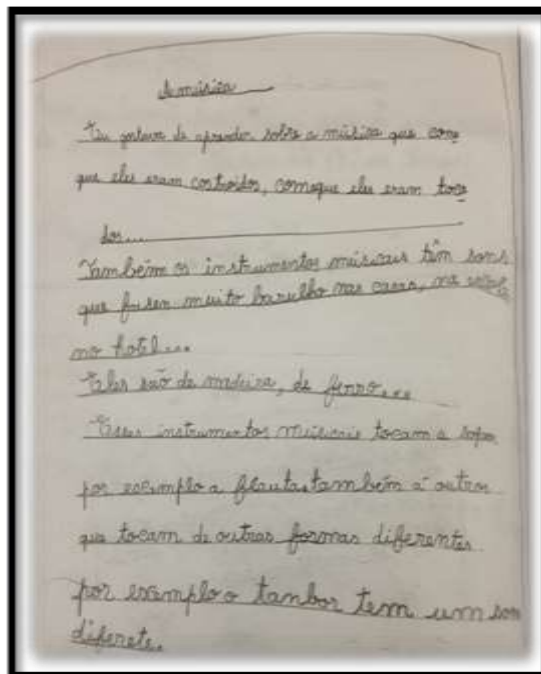 A música
Eu gostava de aprender sobre a música que como
que eles eram controidos, comoque eles eram toca
dos...
Também os instrumentos músicais têm sons
que fasem muito barulho nas casas, na
no hotel...
Eles são de madeira, de ferro...
Esses instrumentos músicais tocam a sopro
por exemplo a flauta, também á outros
que tocam de outras formas diferentes
por exemplo o tanbor tem um som
diferete.